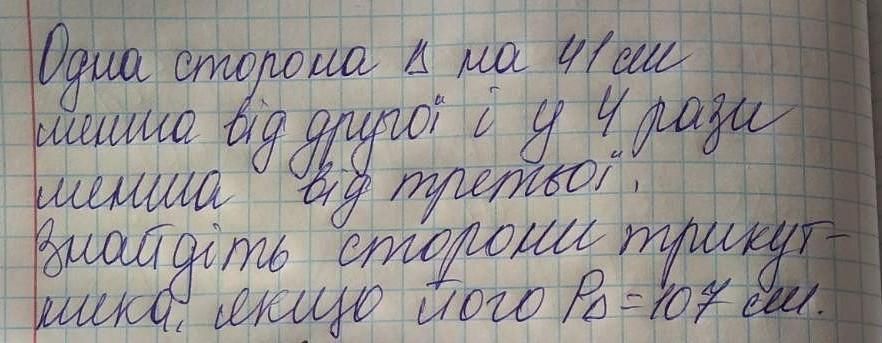 Одна сторона Δ на 41 см
менша від другої і у 4 рази
менша від третьої.
Знайдіть сторони трикут-
ника, якщо його PΔ = 107 см.